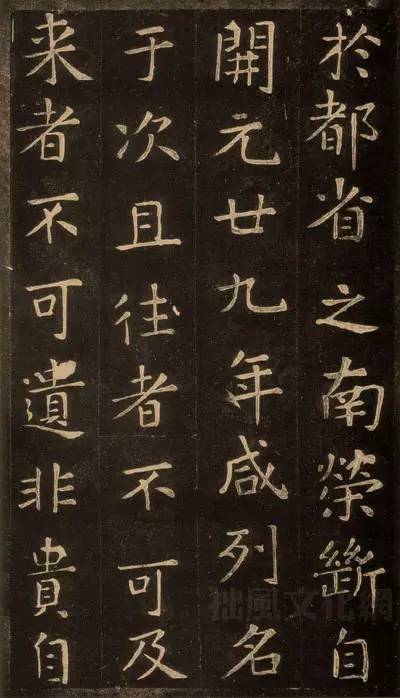 於都省之南榮斷自
開元廿九年咸列名
于次且往者不可及
来者不可遺非貴自
拙風文化網